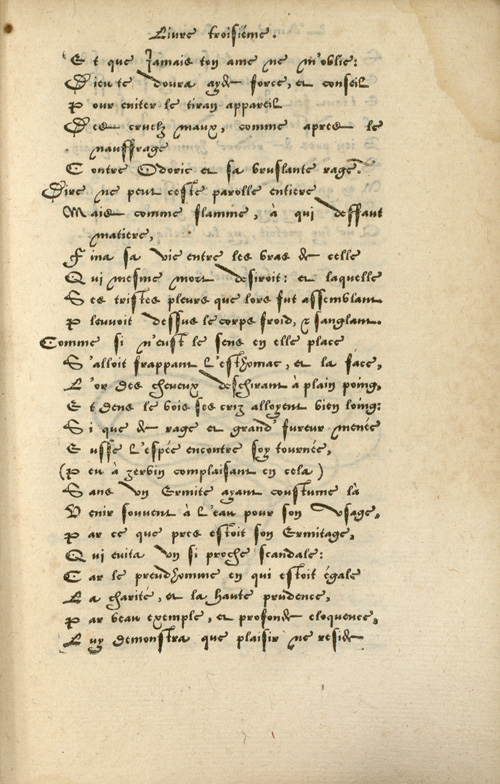 Liure troisiéme.
Et que Jamais ton ame ne m'oblie:
Dieu te doura ayde force, et conseil
Pour euiter le tiran appareil
Des cruelz maux, comme apres le
nauffrage
Contre Odoric et sa bruslante rage.
Dire ne peut ceste parolle entiere
Mais comme flamme, à qui deffaut
matiere,
Fina sa vie entre les bras de celle
Qui mesme mort desiroit: et laquelle
Ses tristes pleurs que lors fut assemblant
Pleuuoit dessus le corps froid, & sanglant.
Comme si n'eust le sens en elle place
S'alloit frappant l'esthomac, et la face,
L'or des cheueux deschirant à plain poing,
Et dens le bois ses criz alloyent bien loing:
Si que de rage et grand' fureur menée
Eusse l'espée encontre soy tournée,
(Peu à zerbin complaisant en cela)
Sans vn Ermite ayant coustume la
Venir souuent à l'eau pour son vsage,
Par ce que pres estoit son Ermitage,
Qui euita vn si proche scandale:
Car le preudhomme en qui estoit égale
La charité, et la haute prudence,
Par beau exemple, et profonde eloquence,
Luy demonstra que plaisir ne reside